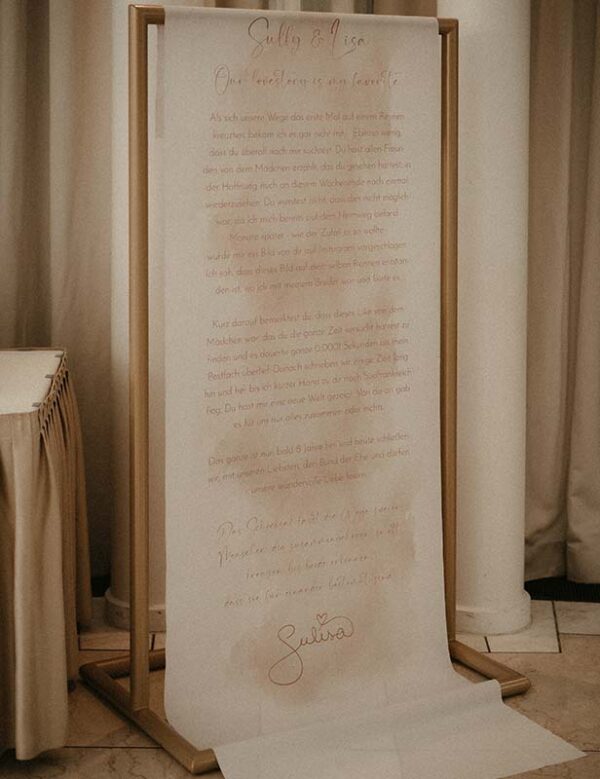 Sully & Lisa
Our lovestory is my favorite
Als sich unsere Wege das erste Mal auf einem Rennen
kreuzten, bekam ich es gar nicht mit. Ebenso wenig,
dass du überall nach mir suchtest. Du hast allen Freun-
den von dem Mädchen erzählt, das du gesehen hattest, in
der Hoffnung mich an diesem Wochenende noch einmal
wiederzusehen. Du wusstest nicht, dass dies nicht möglich
war, da ich mich bereits auf dem Heimweg befand.
Monate später - wie der Zufall es so wollte -
wurde mir ein Bild von dir auf Instagram vorgeschlagen.
Ich sah, dass dieses Bild auf dem selben Rennen entstan-
den ist, wo ich mit meinem Bruder war und likte es.
Kurz darauf bemerktest du, dass dieses Like von dem
Mädchen war, das du die ganze Zeit versucht hattest zu
finden und es dauerte ganze 0,0001 Sekunden bis mein
Postfach überlief. Danach schrieben wir einige Zeit lang
hin und her, bis ich kurzer Hand zu dir nach Südfrankreich
flog. Du hast mir eine neue Welt gezeigt. Von da an gab
es für uns nur alles zusammen oder nichts.
Das ganze ist nun bald 8 Jahre her und heute schließen
wir, mit unseren Liebsten, den Bund der Ehe und dürfen
unsere wundervolle Liebe feiern.
Das Schicksal lässt die Wege zweier
Menschen, die zusammengehören, so oft
kreuzen, bis beide erkennen,
dass sie für einander bestimmt sind.
Sulisa